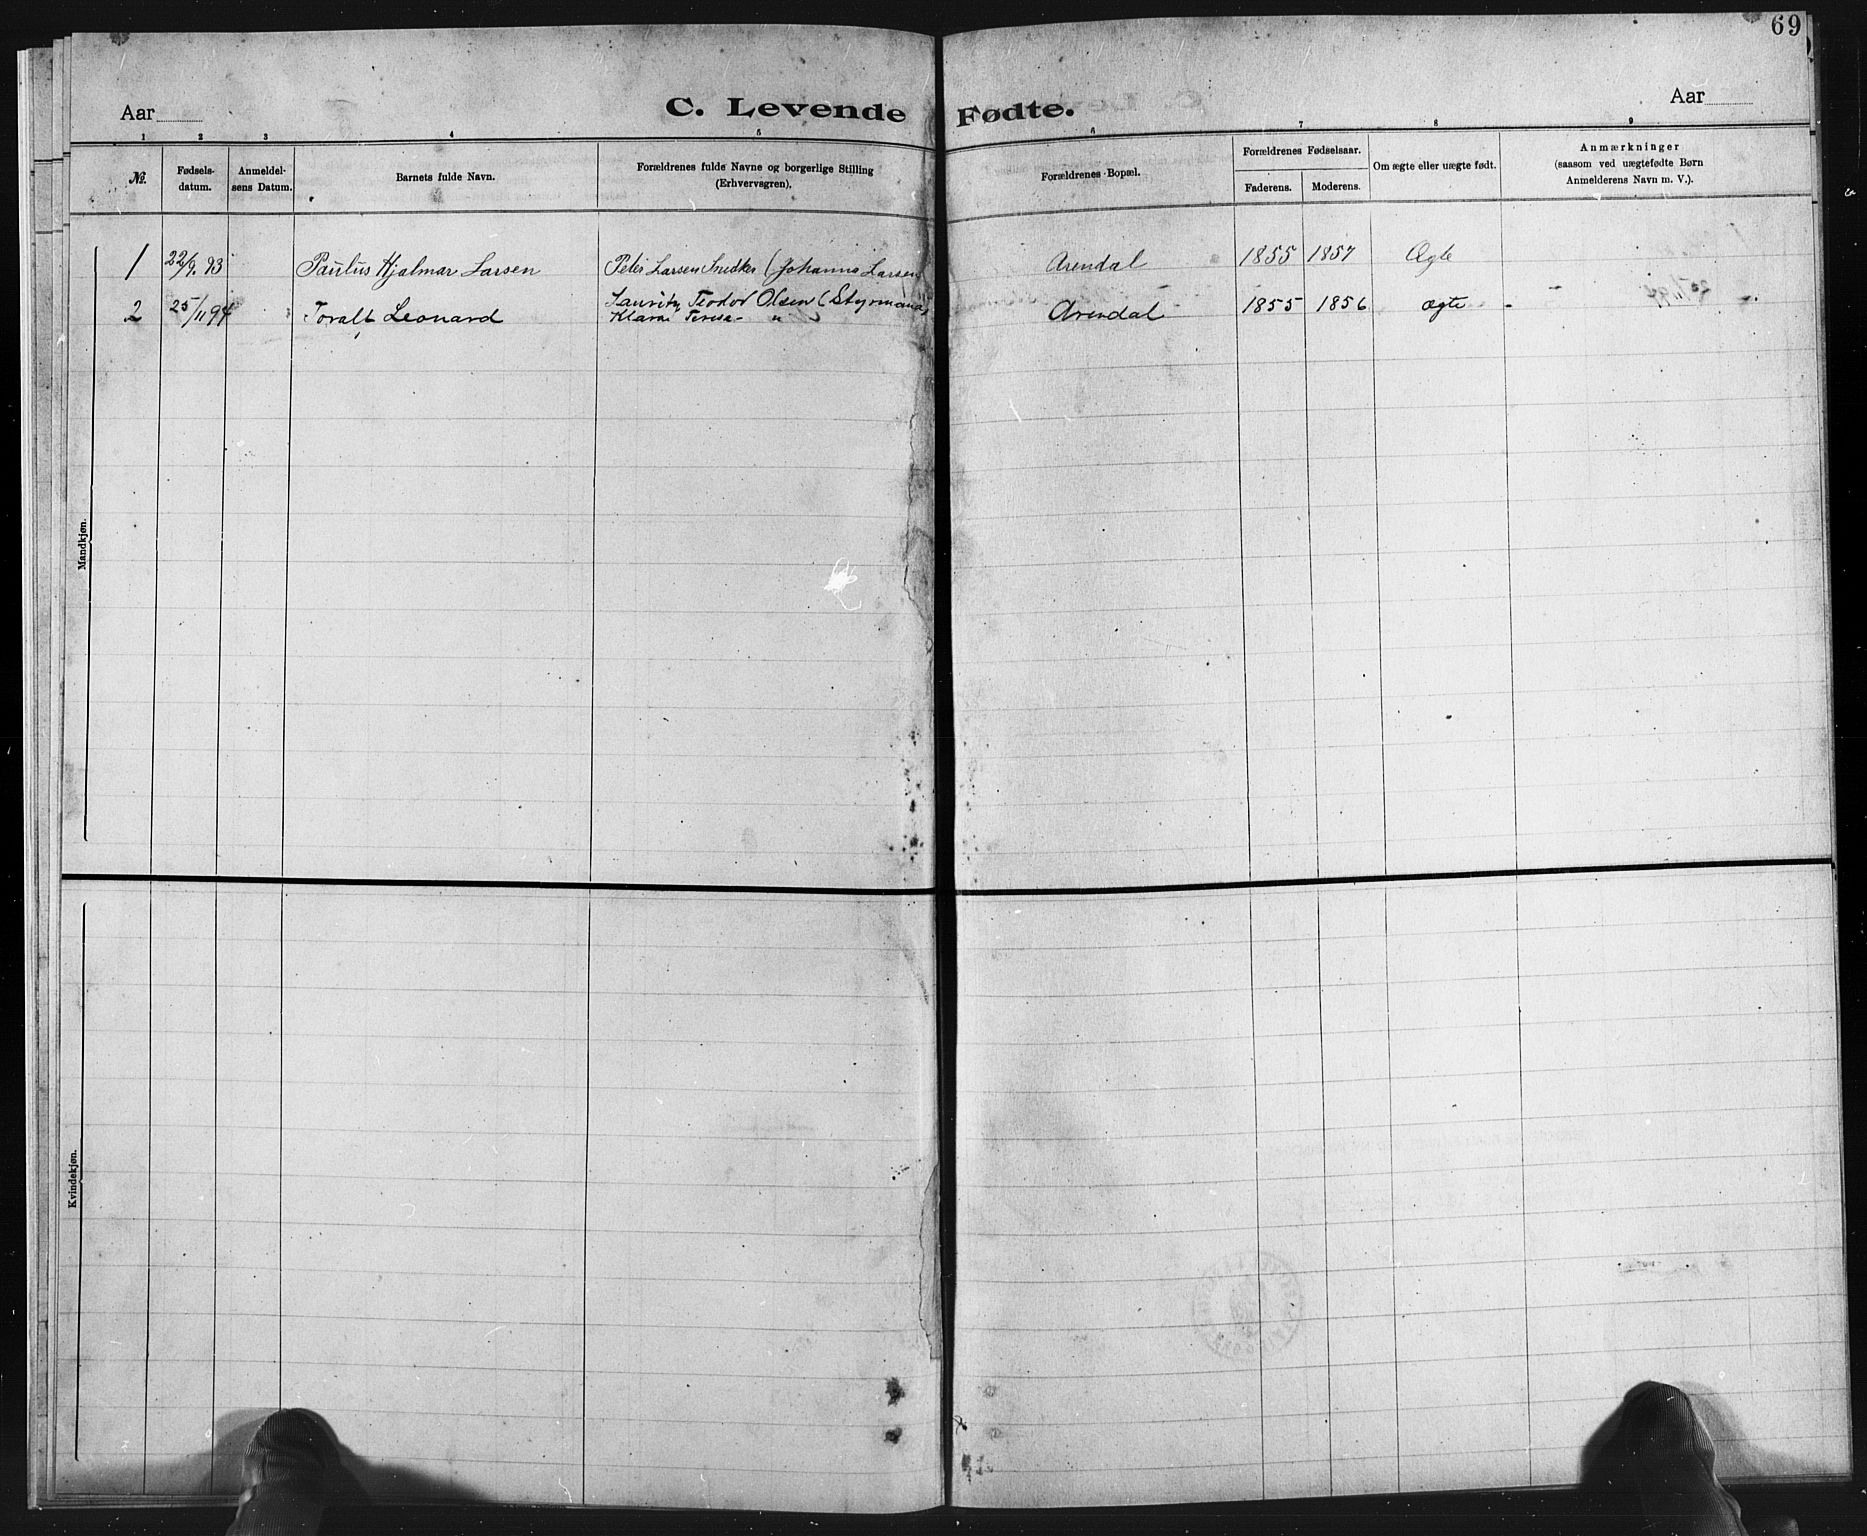 69
Aar
C. Levende Fødte.
Aar
1 2 3 4 5 6 7 8 9
№. Fødsels-datum. Anmeldel-sens Datum. Barnets fulde Navn. Forældrenes fulde Navne og borgerlige Stilling (Erhvervsgren). Forældrenes Bopæl. Forældrenes Fødselsaar. Faderens. Moderens. Om ægte eller uægte født. Anmærkninger (saasom ved uægtefødte Børn Anmelderens Navn m. V.).
1 22/9. 93 Paulus Hjalmar Larsen Peter Larsen Snedker (Johanna Larsen Arendal 1855 1857 Ægte
2 25/11 94 Toralf Leonard Lauritz Teodor Olsen (Styrmand) Arendal 1855 1856 ægte
Klara Teresa — "
Mandkjøn.
Kvindekjøn.